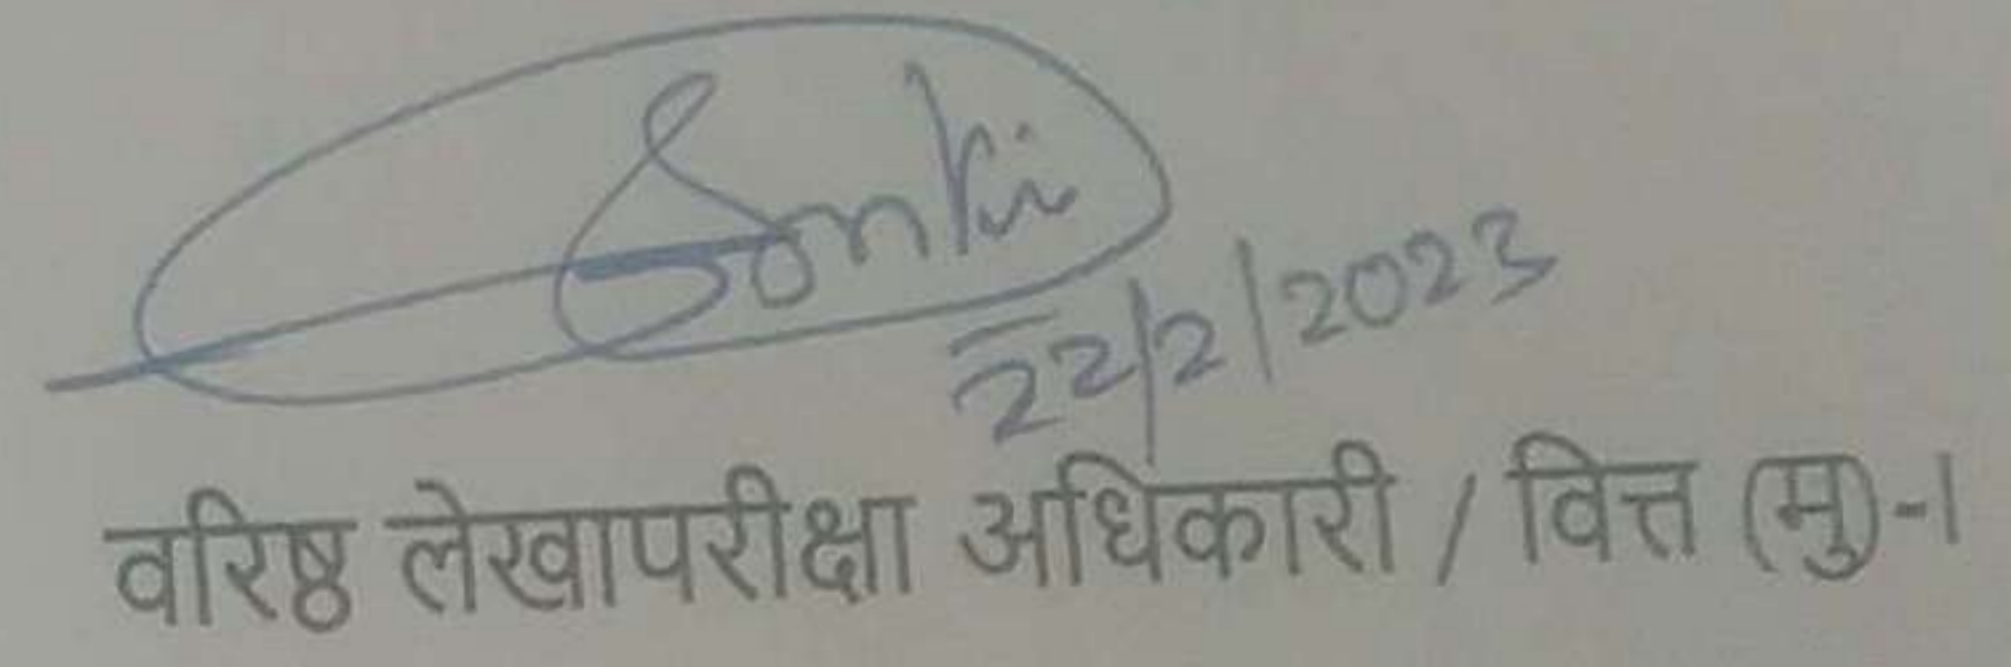 22/2/2023
वरिष्ठ लेखापरीक्षा अधिकारी / वित्त (मु)-I